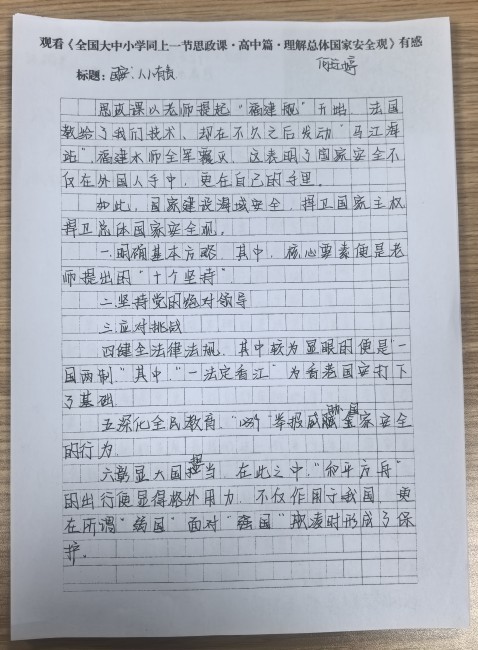 观看《全国大中小学同上一节思政课·高中篇·理解总体国家安全观》有感
标题：国安，人人有责
思政课以老师提起“福建舰”开始，法国
教给了我们技术，现在不久之后发动“马江海
站”，福建水师全军覆灭，这表明了国家安全不
仅在外国人手中，更在自己的手里。
如此，国家建设海域安全，捍卫国家主权
捍卫总体国家安全观。
一.明确基本方略，其中，核心要素便是老
师提出的“十个坚持”
二.坚持党的绝对领导
三.应对挑战
四健全法律法规，其中较为显眼的便是“一
国两制”其中，“一法定香江”为香港国安打下
了基础
五深化全民教育，举报威胁国家安全
的行为
六彰显大国担当，在此之中，“和平方舟”
的出行便显得格外用力，不仅作用于我国，更
在所谓“弱国”面对“强国”欺凌时形成了保
护。